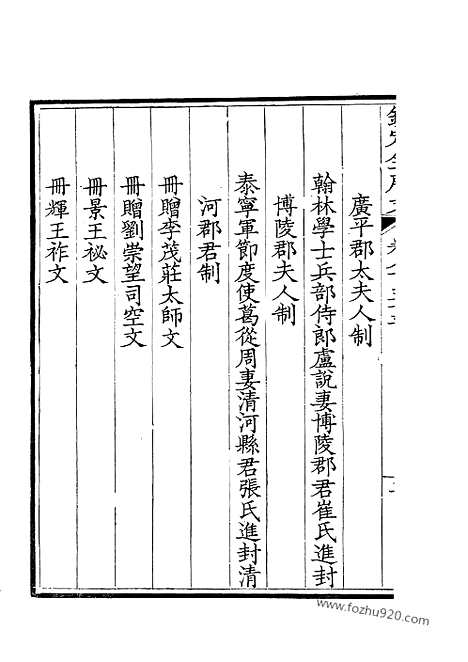 廣平郡太夫人制
翰林學士兵部侍郎盧說妻博陵郡君崔氏進封
博陵郡夫人制
泰寧軍節度使葛從周妻清河縣君張氏進封清
河郡君制
冊贈李茂莊太師文
冊贈劉崇望司空文
冊景王祕文
冊輝王祚文
www.fozhu920.com